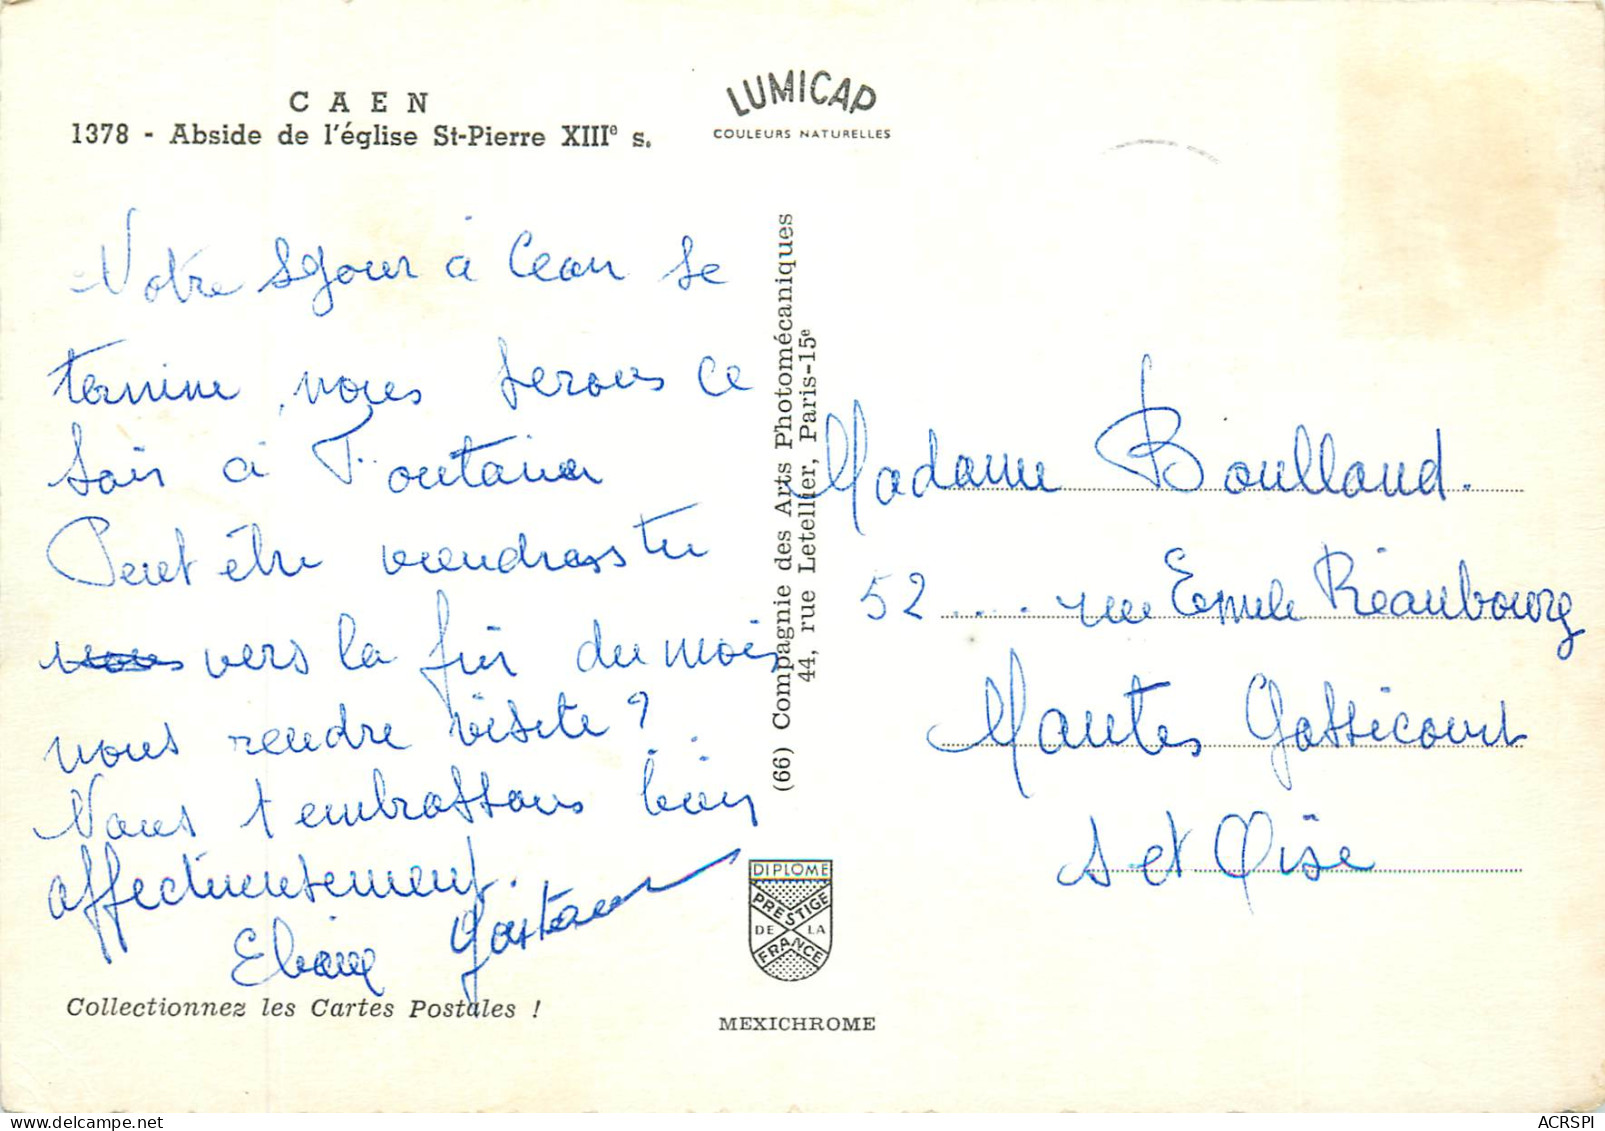 CAEN
1378 - Abside de l'église St-Pierre XIIIe s.
LUMICAP
COULEURS NATURELLES
Notre séjour à Cean se
termine, nous serons ce
soir à Fontaine
Peut être viendras tu
vers la fin du mois
nous rendre visite ?
Nous t'embrassons bien
affectueusement.
Eliane Gaston
Collectionnez les Cartes Postales !
(66) Compagnie des Arts Photomécaniques
44, rue Letellier, Paris-15e
DIPLOME
PRESTIGE
DE LA
FRANCE
MEXICHROME
Madame Boulland.
52 .... rue Emile Réaubourg
Mantes Gassicourt
S et Oise
ACRSPI